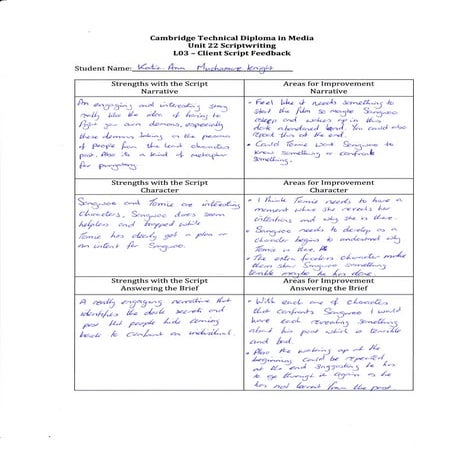 Cambridge Technical Diploma in Media
Unit 22 Scriptwriting
LO3 – Client Script Feedback
Student Name: Katie-Ann Knight
Strengths with the Script
Narrative
An engaging and interesting story
really like the idea of having to
fight your own demons, especially
these demons taking on the persona
of people from the lead characters
past. Also is a kind of metaphor
for purgatory.
Areas for Improvement
Narrative
• Feel like it needs something to
start the film so maybe Sangwoo
asleep and wakes up in this
dark abandoned land. You could also
repeat this at the end.
• Could Tomie want Sangwoo to
know something or confront
something.
Strengths with the Script
Character
Sangwoo and Tomie are interesting
characters, Sangwoo does seem
helpless and trapped while
Tomie has clearly got a plan or
an intent for Sangwoo.
Areas for Improvement
Character
• I think Tomie needs to have a
moment where she reveals her
intentions and why she is there.
• Sangwoo needs to develop as a
character begins to understand why
Tomie is there.
• The extra faceless characters make
them show Sangwoo something
terrible maybe he has done.
Strengths with the Script
Answering the Brief
A really engaging narrative that
identifies the dark secrets and
past that people hide coming
back to confront an individual.
Areas for Improvement
Answering the Brief
• With each one of characters
that confronts Sangwoo I would
have each revealing something
about his past which is terrible
and bad.
• Also the waking up at the
beginning could be repeated
at the end suggesting he has
to go through it again as he
has not learnt from the past.